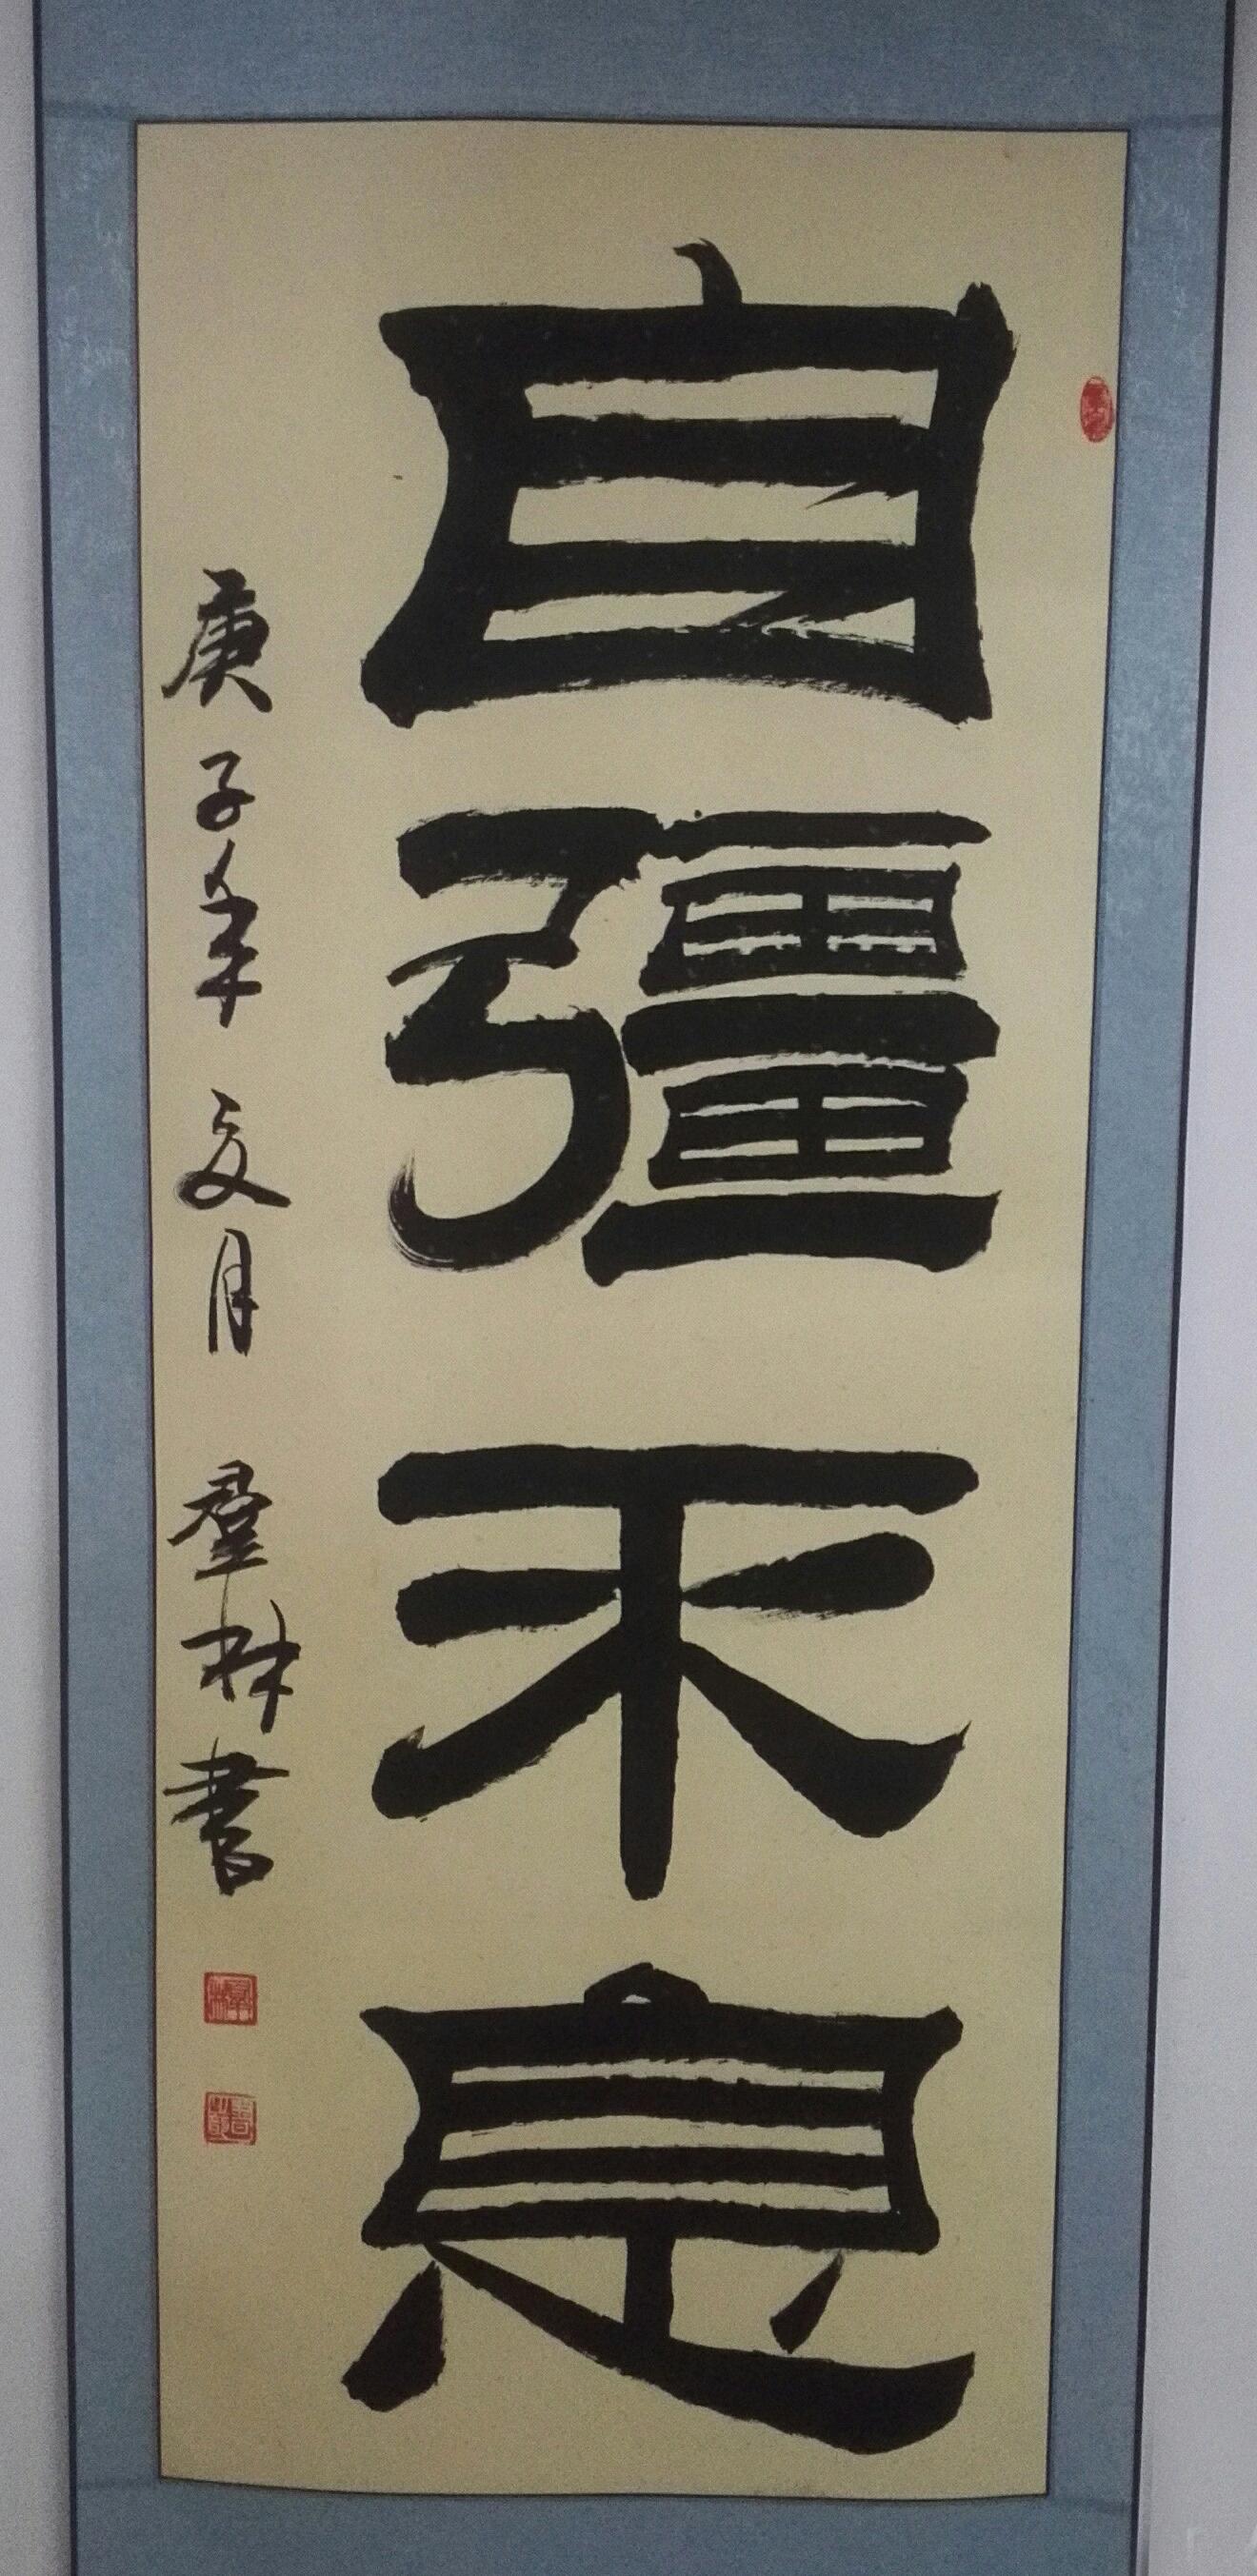 自彊不息
庚子年 夏月 羣林書